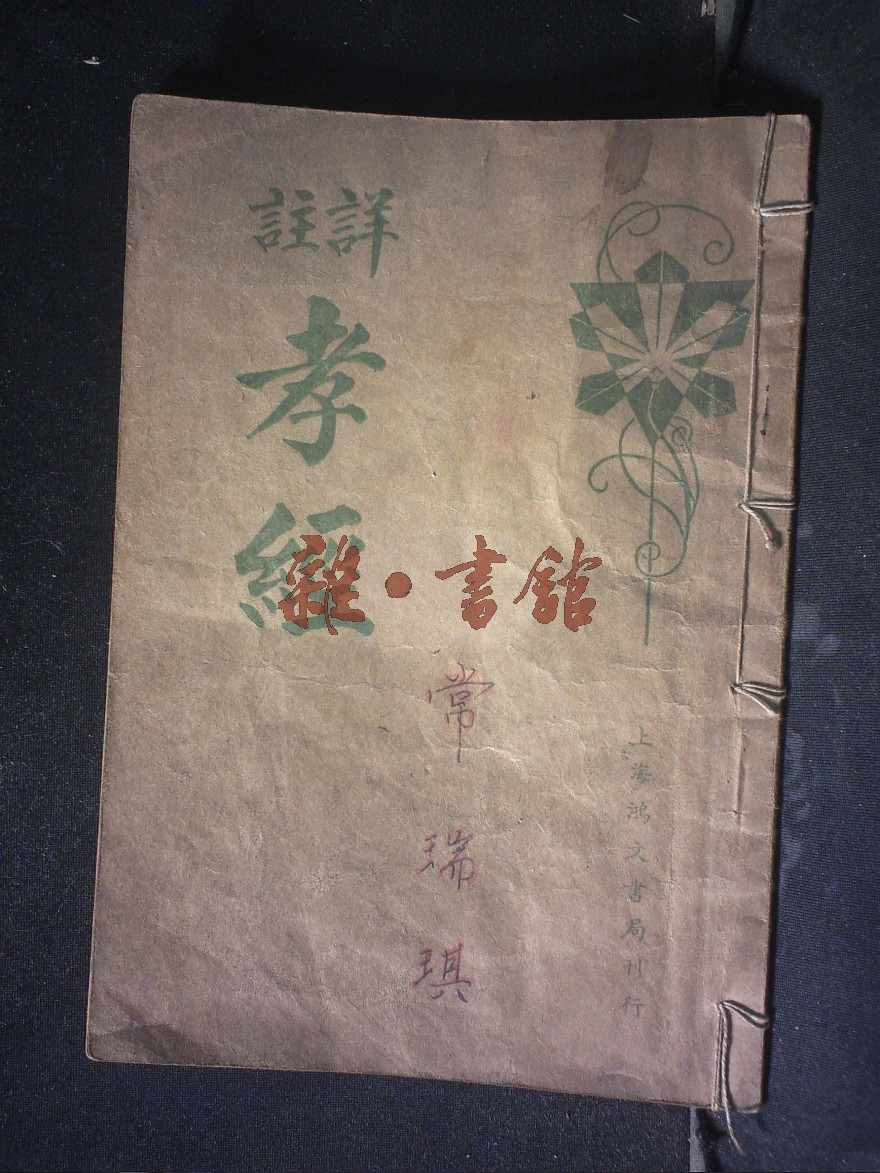 詳註
孝經
常瑞琪
上海鴻文書局刊行
雜·書館